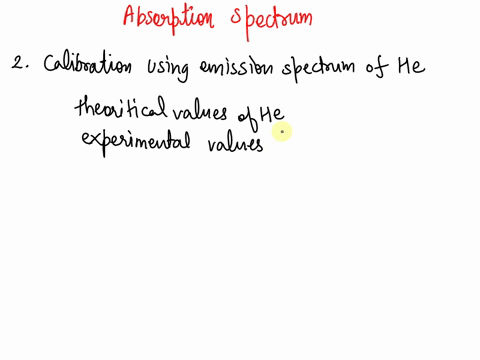 Absorption spectrum
2. Calibration using emission spectrum of He
theoritical values of He
experimental values